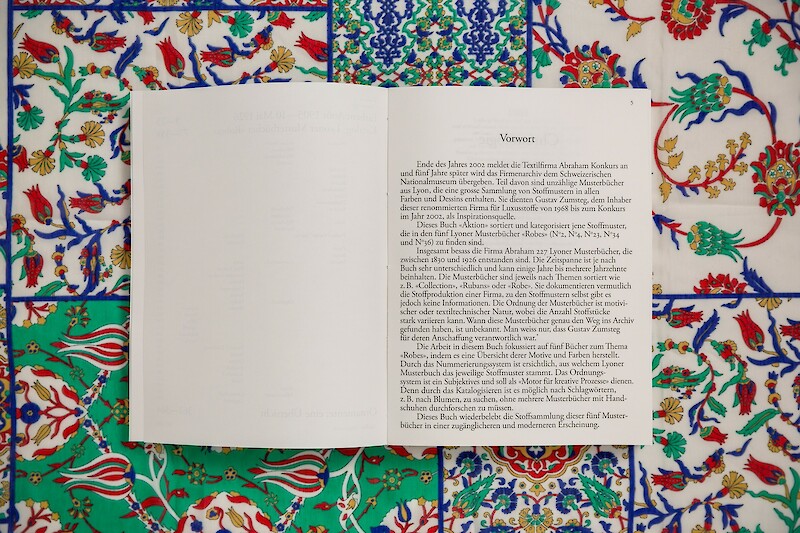 5
Vorwort
Ende des Jahres 2002 meldet die Textilfirma Abraham Konkurs an
und fünf Jahre später wird das Firmenarchiv dem Schweizerischen
Nationalmuseum übergeben. Teil davon sind unzählige Musterbücher
aus Lyon, die eine grosse Sammlung von Stoffmustern in allen
Farben und Dessins enthalten. Sie dienten Gustav Zumsteg, dem Inhaber
dieser renommierten Firma für Luxusstoffe von 1968 bis zum Konkurs
im Jahr 2002, als Inspirationsquelle.
Dieses Buch «Aktion» sortiert und kategorisiert jene Stoffmuster,
die in den fünf Lyoner Musterbücher «Robes» (N°2, N°4, N°23, N°34
und N°36) zu finden sind.
Insgesamt besass die Firma Abraham 227 Lyoner Musterbücher, die
zwischen 1830 und 1926 entstanden sind. Die Zeitspanne ist je nach
Buch sehr unterschiedlich und kann einige Jahre bis mehrere Jahrzehnte
beinhalten. Die Musterbücher sind jeweils nach Themen sortiert wie
z. B. «Collection», «Rubans» oder «Robe». Sie dokumentieren vermutlich
die Stoffproduktion einer Firma, zu den Stoffmustern selbst gibt es
jedoch keine Informationen. Die Ordnung der Musterbücher ist motivi-
scher oder textiltechnischer Natur, wobei die Anzahl Stoffstücke
stark variieren kann. Wann diese Musterbücher genau den Weg ins Archiv
gefunden haben, ist unbekannt. Man weiss nur, dass Gustav Zumsteg
für deren Anschaffung verantwortlich war.
Die Arbeit in diesem Buch fokussiert auf fünf Bücher zum Thema
«Robes», indem es eine Übersicht derer Motive und Farben herstellt.
Durch das Nummerierungssystem ist ersichtlich, aus welchem Lyoner
Musterbuch das jeweilige Stoffmuster stammt. Das Ordnungs-
system ist ein Subjektives und soll als «Motor für kreative Prozesse» dienen.
Denn durch das Katalogisieren ist es möglich nach Schlagwörtern,
z. B. nach Blumen, zu suchen, ohne mehrere Musterbücher mit Hand-
schuhen durchforschen zu müssen.
Dieses Buch wiederbelebt die Stoffsammlung dieser fünf Muster-
bücher in einer zugänglicheren und moderneren Erscheinung.